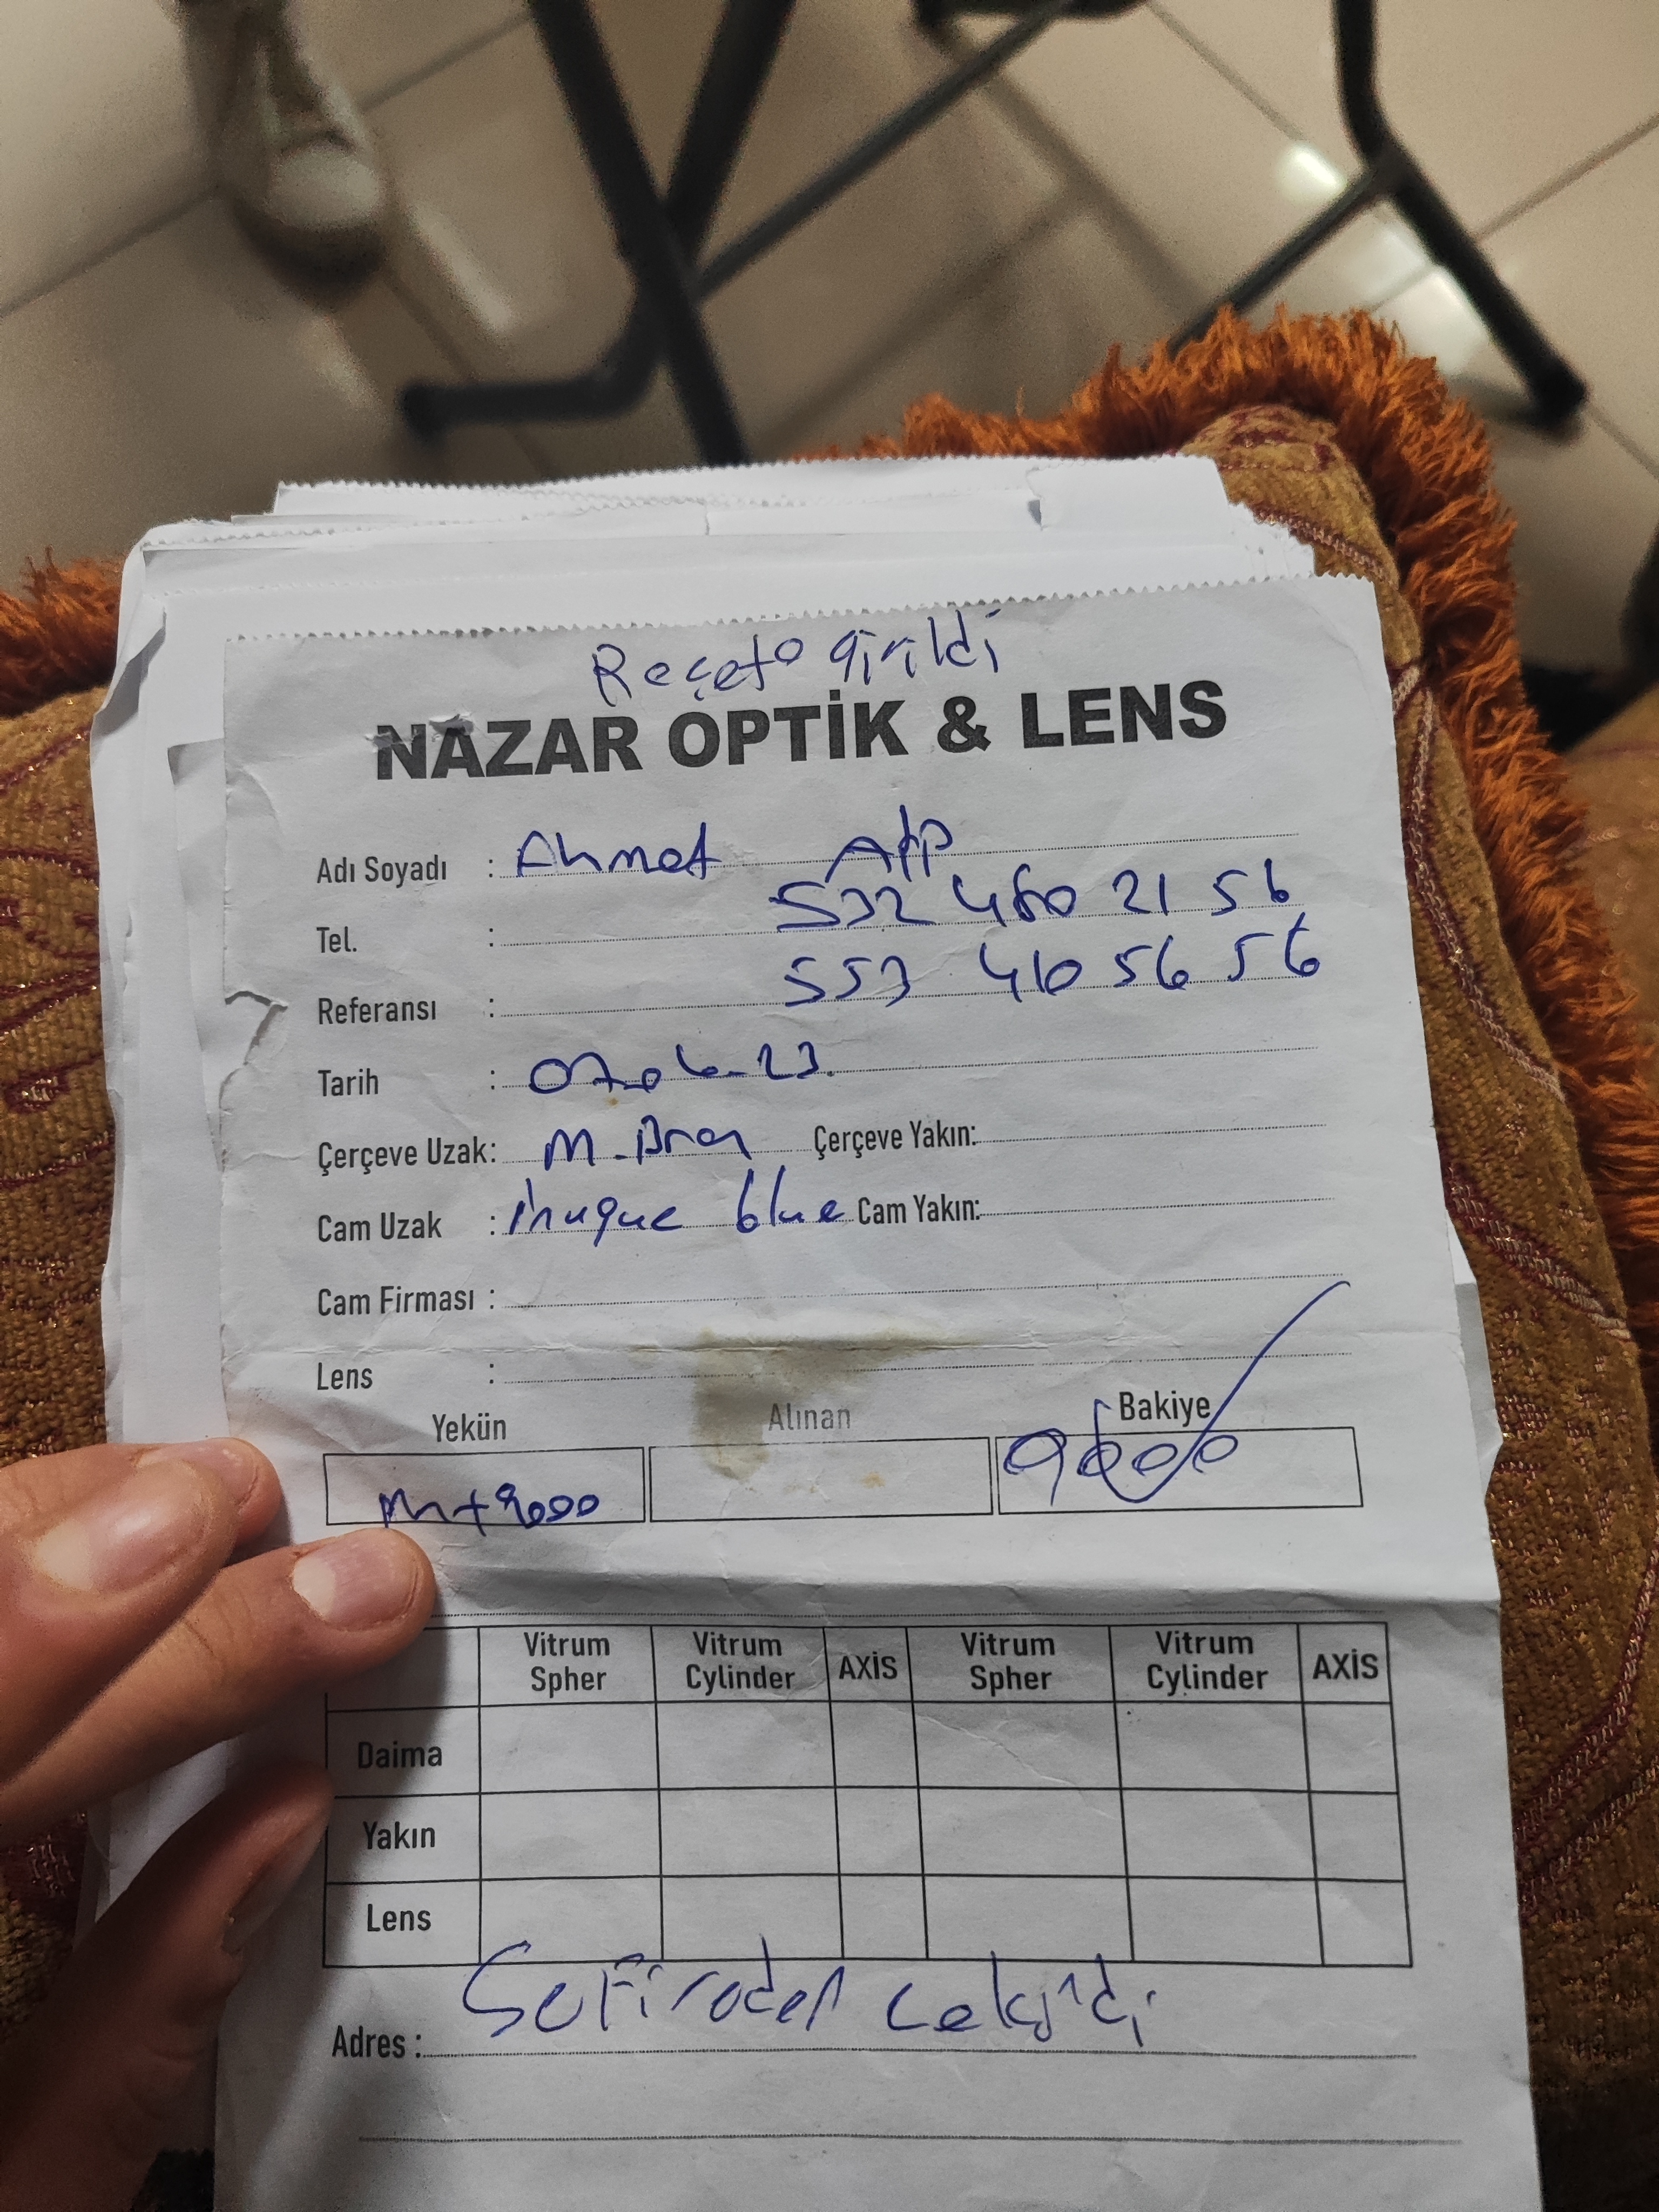 Reçete girildi
NAZAR OPTİK & LENS
Adı Soyadı : Ahmet
Tel. : 532 460 21 56
Referansı : 553 410 56 56
Tarih : 07.06.23.
Çerçeve Uzak: Çerçeve Yakın:
Cam Uzak : blue Cam Yakın:
Cam Firması :
Lens :
Yekün Alınan Bakiye
m+9000
Vitrum Spher Vitrum Cylinder AXİS Vitrum Spher Vitrum Cylinder AXİS
Daima
Yakın
Lens
Adres : çekildi